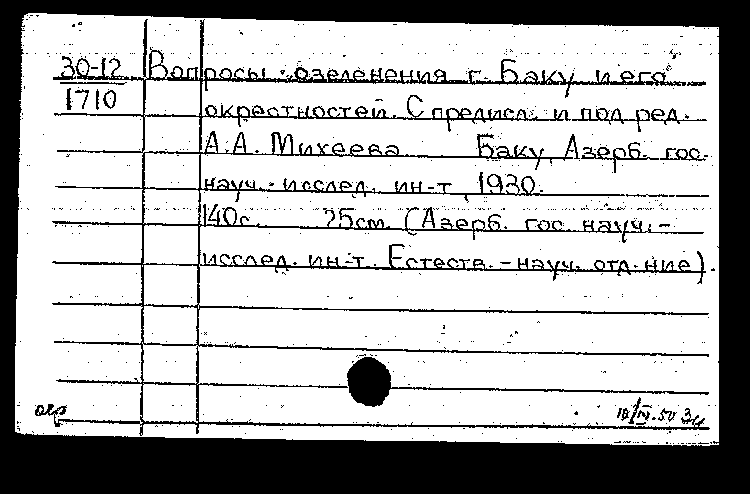 30-12 Вопросы озеленения г. Баку и его
1710 окрестностей. С предисл. и под ред.
А.А. Михеева Баку, Азерб. гос.
науч.-исслед. ин-т, 1930.
140с. 25см. (Азерб. гос. науч.-
исслед. ин-т. Естеств.-науч. отд-ние).